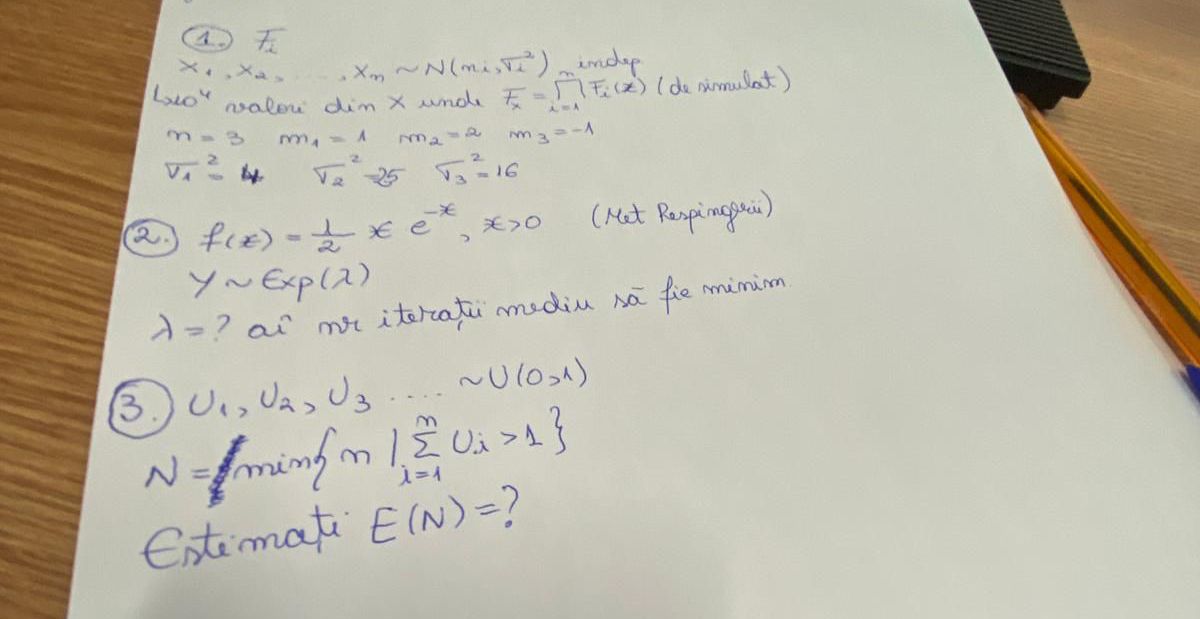 1. Fi
X1, X2, ...., Xn ~ N(mi, σi²) indep
10⁴ valori din X unde Fx = ∏ i=1 n Fi(x) (de simulat)
n = 3 m1 = 1 m2 = 2 m3 = -1
σ1² = 4 σ2² = 25 σ3² = 16
2. f(x) = 1/2 x e^-x, x>0 (Met Respingerii)
Y ~ Exp(λ)
λ = ? aî nr iterații mediu să fie minim
3. U1, U2, U3 .... ~ U(0,1)
N = min{n | Σ i=1 n Ui > 1}
Estimați E(N) = ?